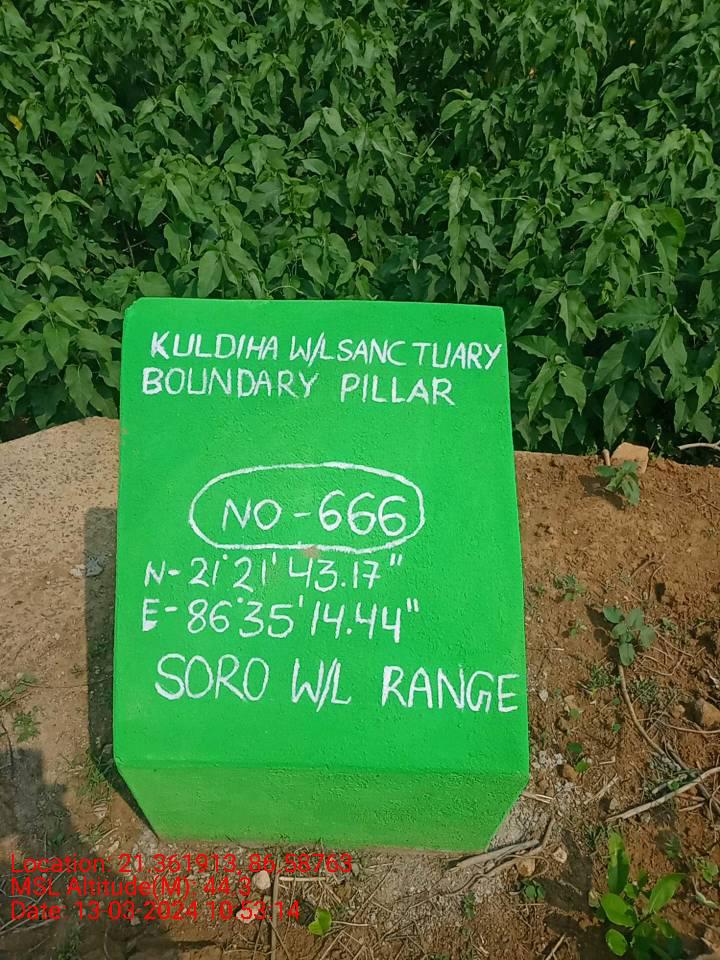 KULDIHA W/L SANCTUARY
BOUNDARY PILLAR
NO-666
N-21°21'43.17"
E-86°35'14.44"
SORO W/L RANGE
Location: 21.361913, 86.58763
MSL Altitude(M): 44.3
Date: 13-03-2024 10:53:14